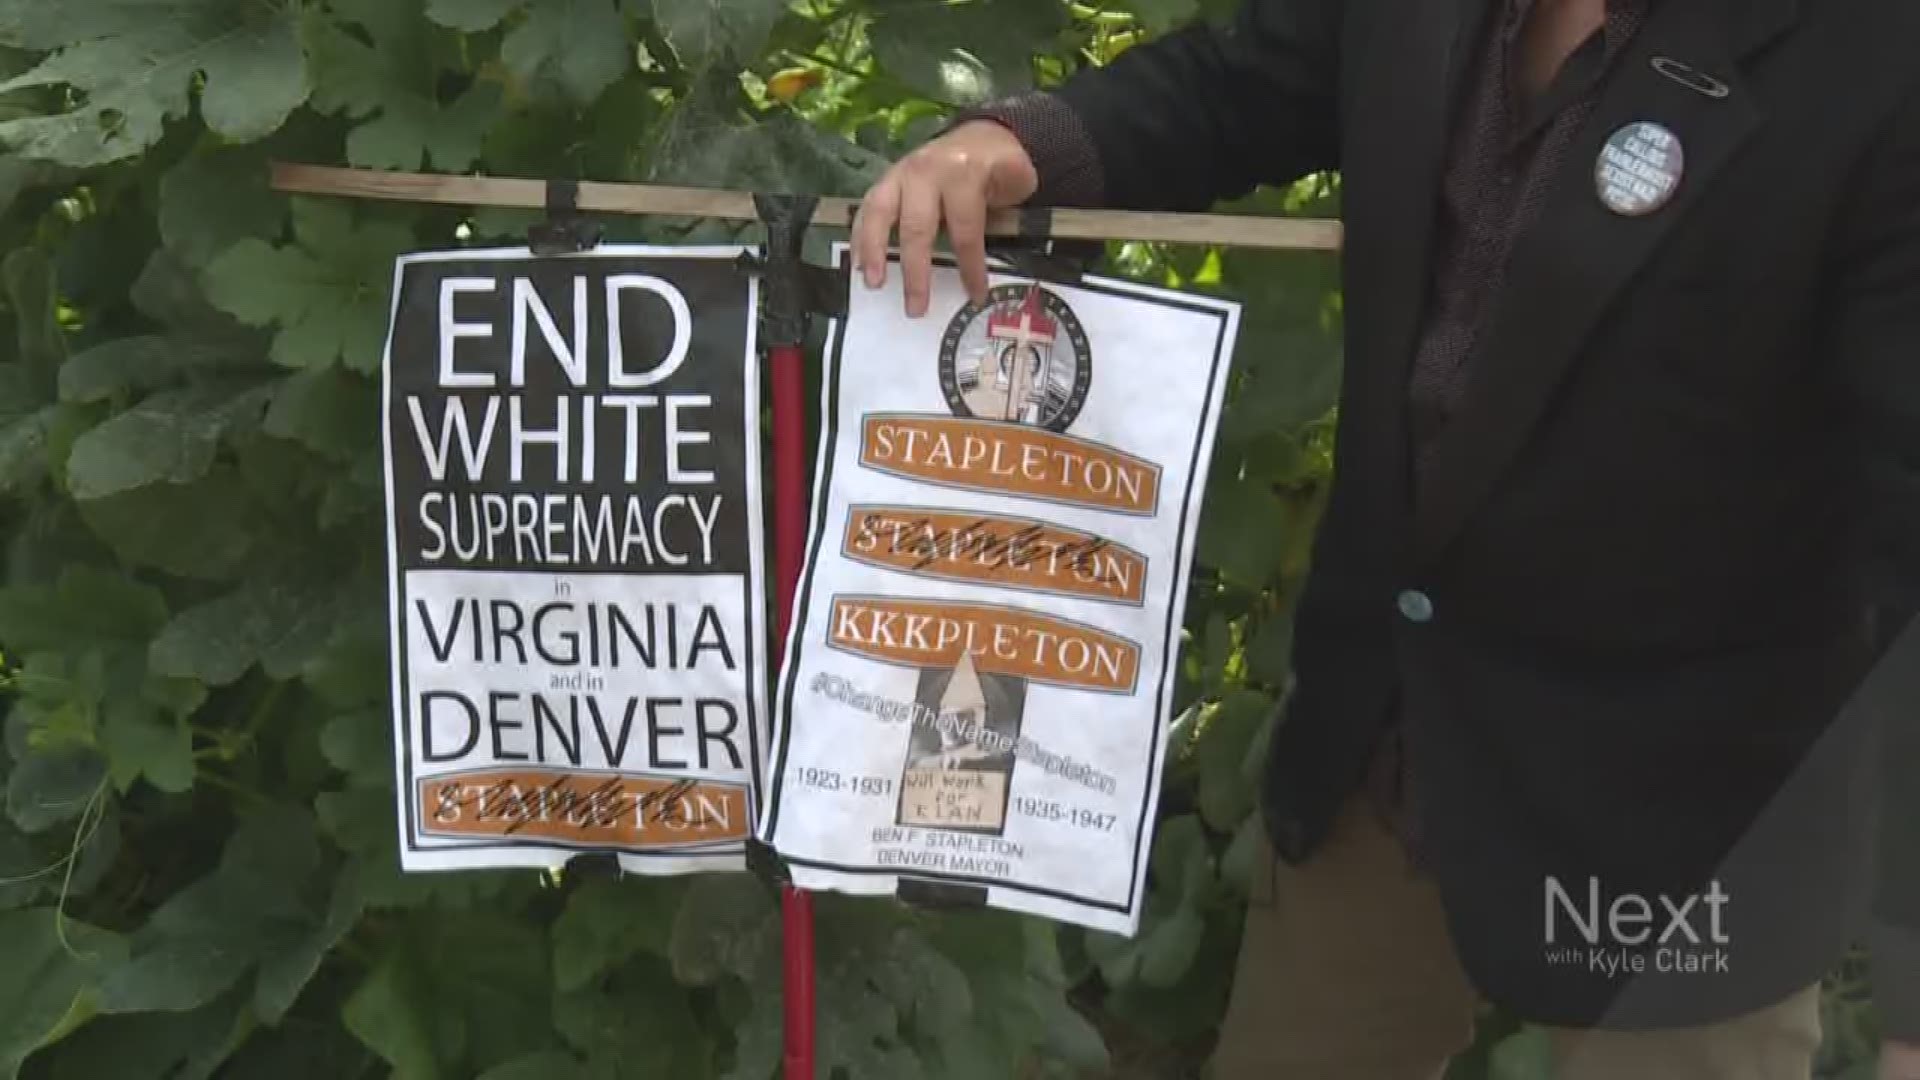 END
WHITE
SUPREMACY
in
VIRGINIA
and in
DENVER
STAPLETON
STAPLETON
STAPLETON
KKKPLETON
#ChangeTheNameStapleton
1923-1931
Will Work
For
KLAN
1935-1947
BEN F STAPLETON
DENVER MAYOR
SUPER
CALLOUS
Next
with Kyle Clark